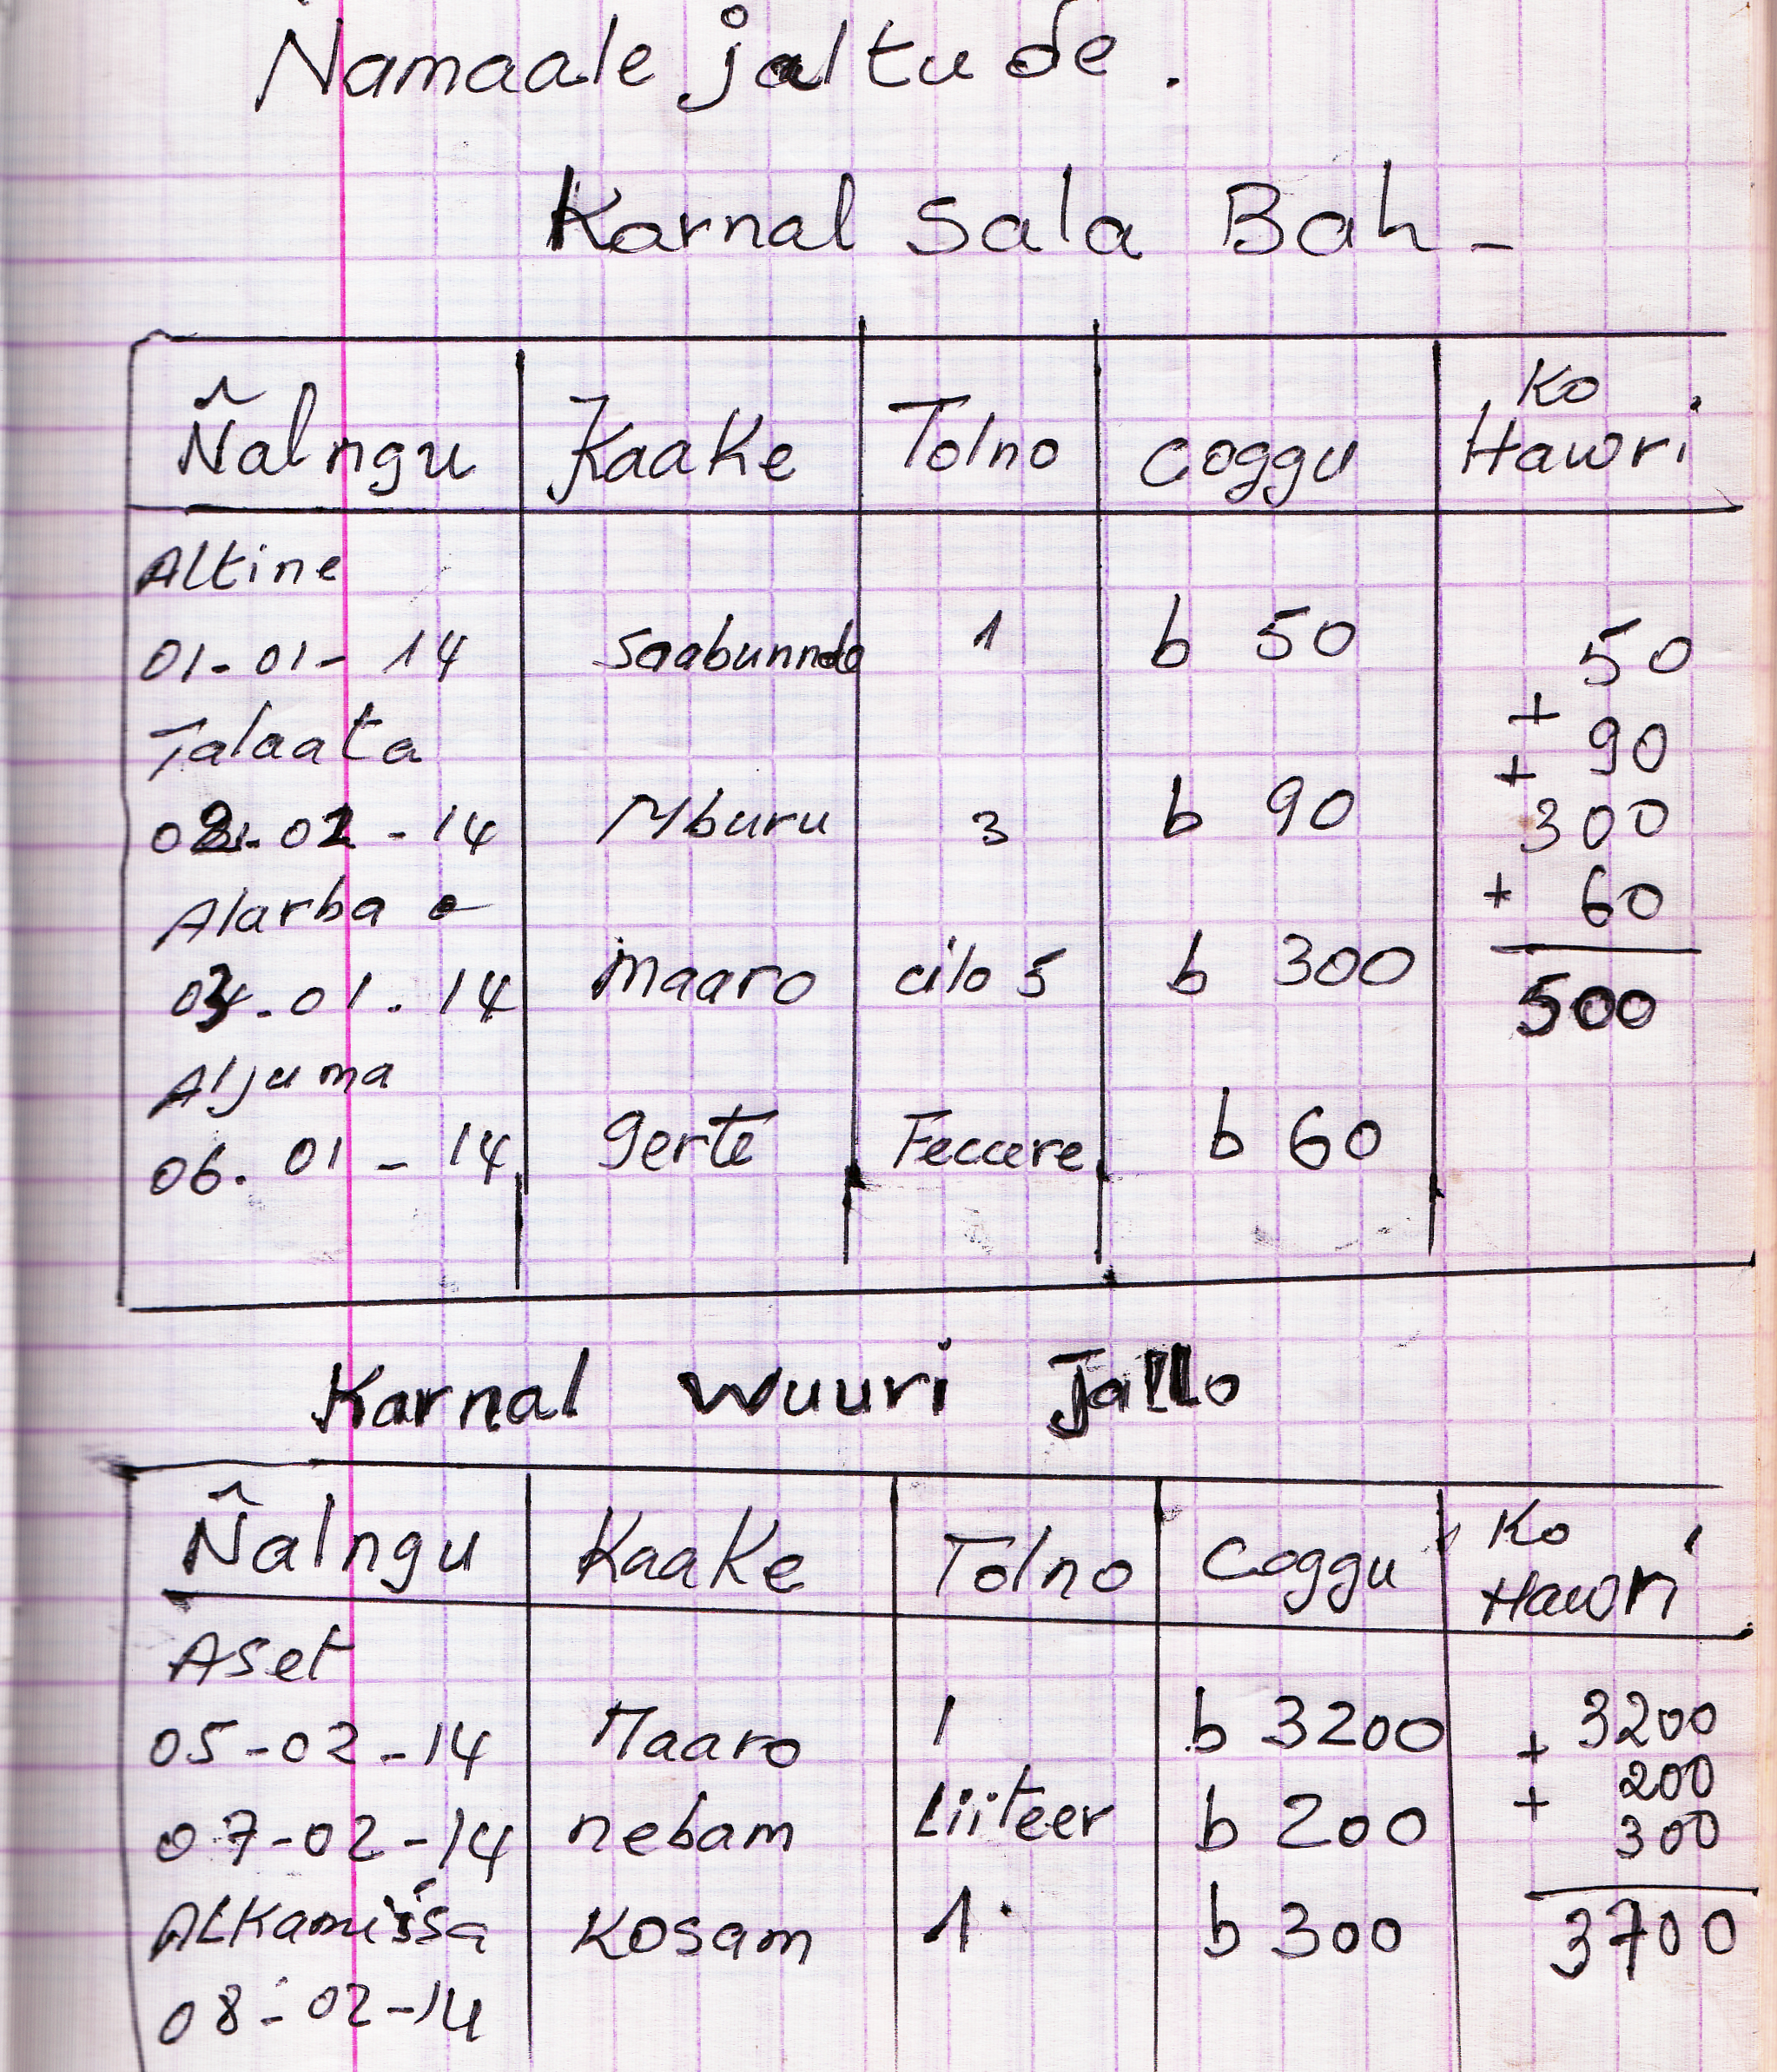 Ñamaale jaltuɗe.
Karnal Sala Bah -
Ñalngu Kaake Tolno coggu Ko Hawri
Altine
01-01-14 Saabunnde 1 b 50 50
Talaata + 90
02-02-14 Mburu 3 b 90 + 300
Alarba + 60
03.01.14 maaro cilo 5 b 300 500
Aljuma
06.01-14 gerte Feccere b 60
Karnal Wuuri Jallo
Ñalngu Kaake Tolno Coggu Ko Hawri
Aset
05-02-14 Maaro 1 b 3200 3200
+ 200
07-02-14 nebam Liiteer b 200 + 300
Alkamiisa Kosam 1 b 300 3700
08-02-14